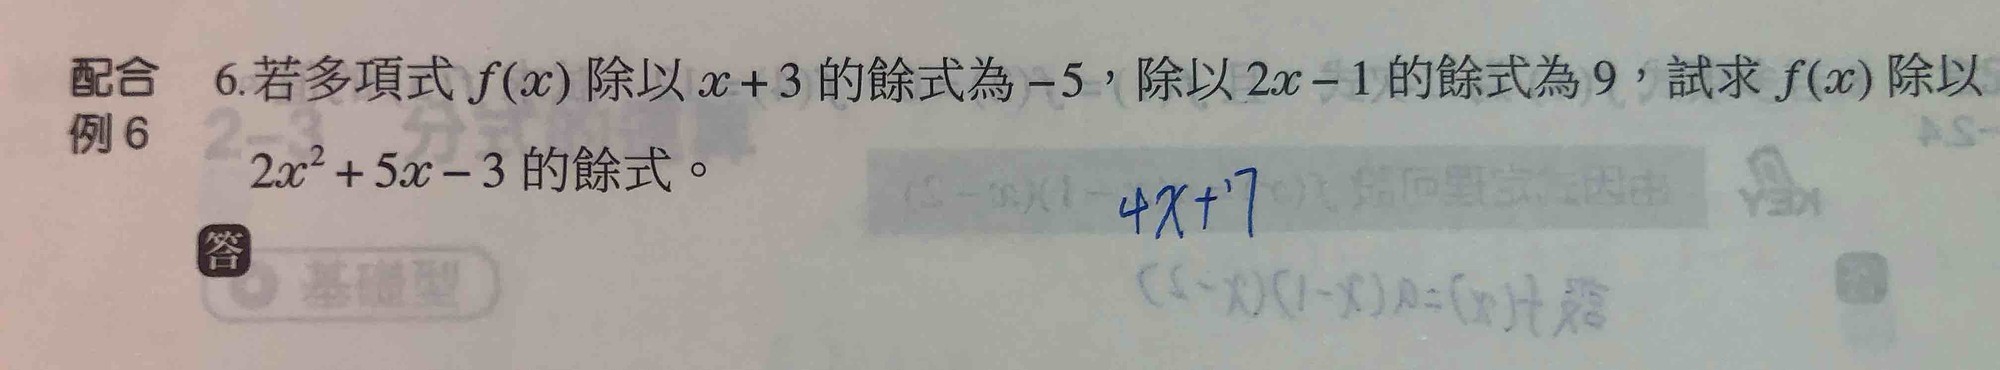 配合 6.若多項式 f(x) 除以 x + 3 的餘式為 -5，除以 2x - 1 的餘式為 9，試求 f(x) 除以
例 6 2x² + 5x - 3 的餘式。
4x+7
答